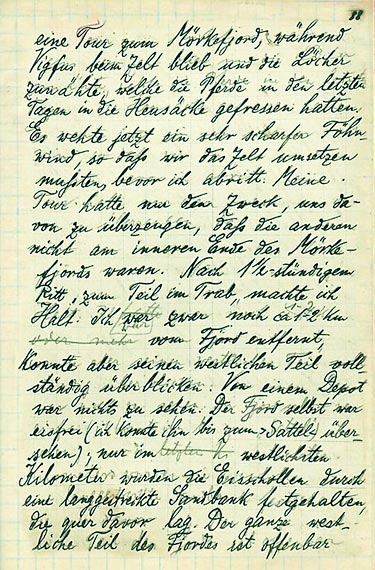 88
eine Tour zum Mörkefjord, während
Vigfus beim Zelt blieb und die Löcher
zunähte, welche die Pferde in den letzten
Tagen in die Heusäcke gefressen hatten.
Es wehte jetzt ein sehr scharfer Föhn-
wind, so daß wir das Zelt umsetzen
mußten, bevor ich abritt. Meine
Tour hatte nur den Zweck, uns da-
von zu überzeugen, daß die anderen
nicht am inneren Ende des Mörke-
fjords waren. Nach 1½-stündigem
Ritt, zum Teil im Trab, machte ich
Halt. Ich war zwar noch ca 1-2 km
oder mehr vom Fjord entfernt,
konnte aber seinen westlichen Teil voll-
ständig überblicken. Von einem Depot
war nichts zu sehen. Der Fjord selbst war
eisfrei (ich konnte ihn bis zum "Sattel" über-
sehen), nur im letzten k westlichsten
Kilometer wurden die Eisschollen durch
eine langgestreckte Sandbank festgehalten,
die quer davor lag. Der ganze west-
liche Teil des Fjordes ist offenbar